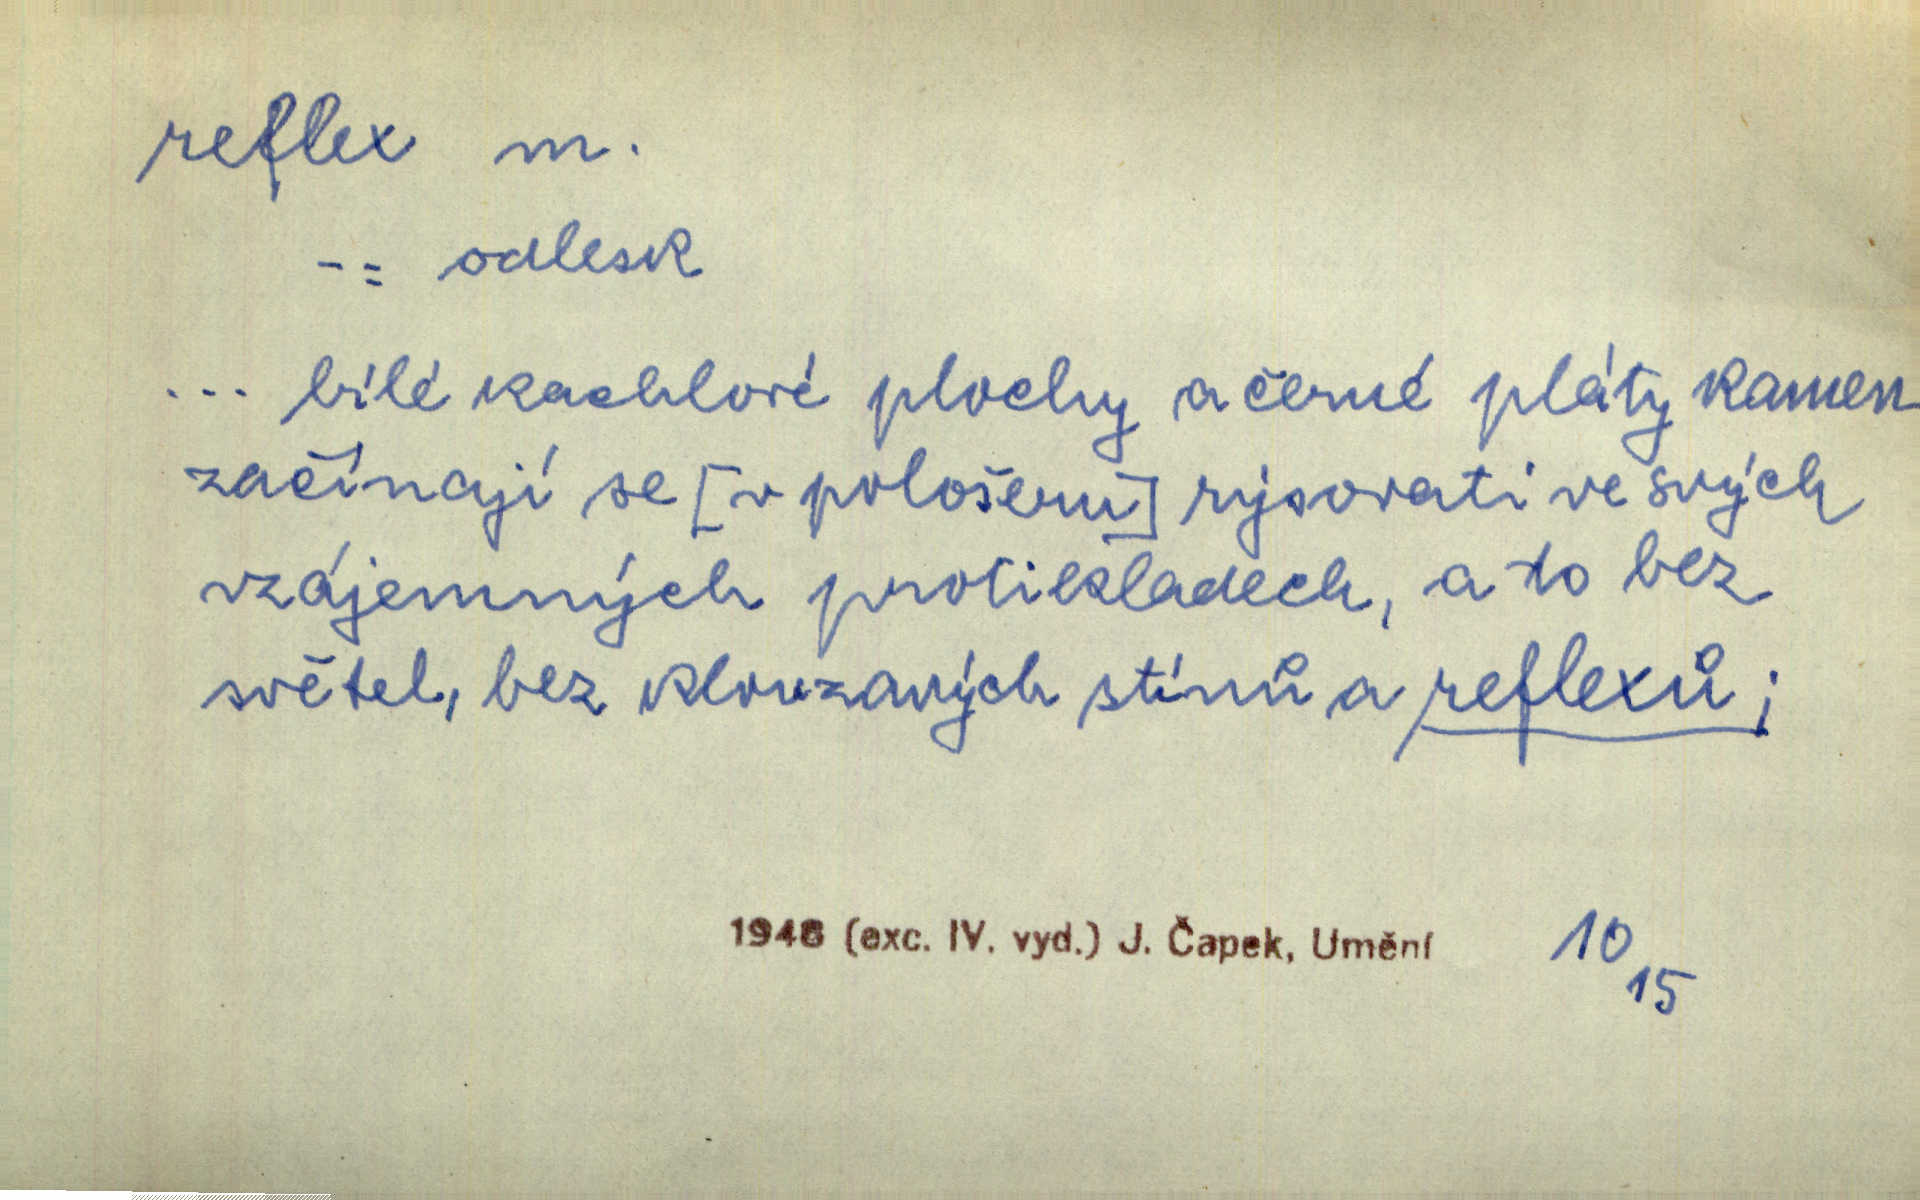 reflex m.
-= odlesk
... bílé kachlové plochy a černé pláty kamen
začínají se [v pološeru] rýsovati ve svých
vzájemných protikladech, a to bez
světel, bez klouzavých stínů a reflexů;
1948 (exc. IV. vyd.) J. Čapek, Umění 10
15